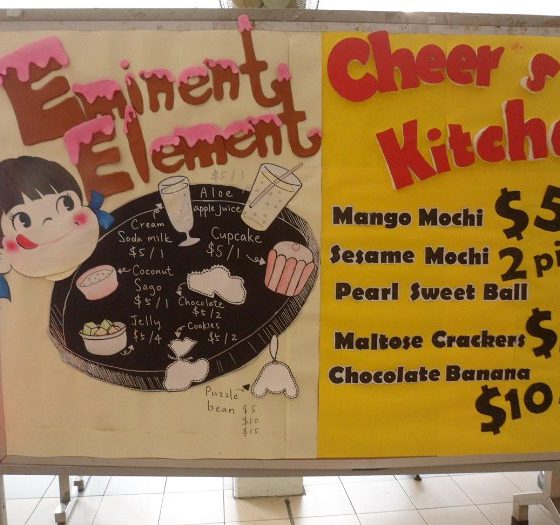 Eminent
Element
$5/1
Aloe
apple juice
Cream
Soda milk
$5/1
Cupcake
$5/1
Coconut
Sago
$5/1
Chocolate
$5/2
Jelly
$5/4
Cookies
$5/2
Puzzle
bean $5
$10
$15
Cheer's
Kitche
Mango Mochi $5
Sesame Mochi 2 p
Pearl Sweet Ball
Maltose Crackers $
Chocolate Banana
$10